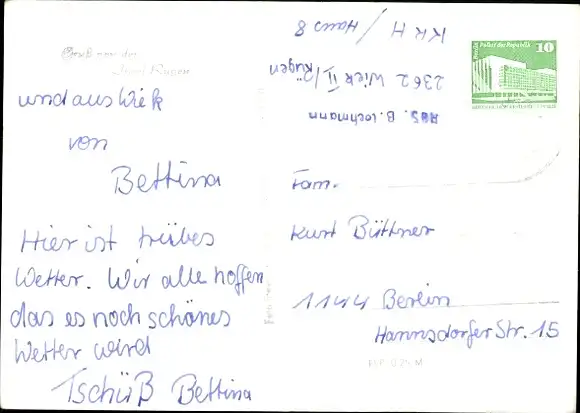 Gruß von der
Insel Rügen
und aus Wiek
von
Bettina
Hier ist trübes
Wetter. Wir alle hoffen
das es noch schönes
Wetter wird
Tschüß Bettina
Abs. B. Lochmann
2362 Wiek II/Rügen
KKH / Haus 8
Palast der Republik
10
Fam.
Kurt Büttner
1144 Berlin
Hannsdorfer Str. 15